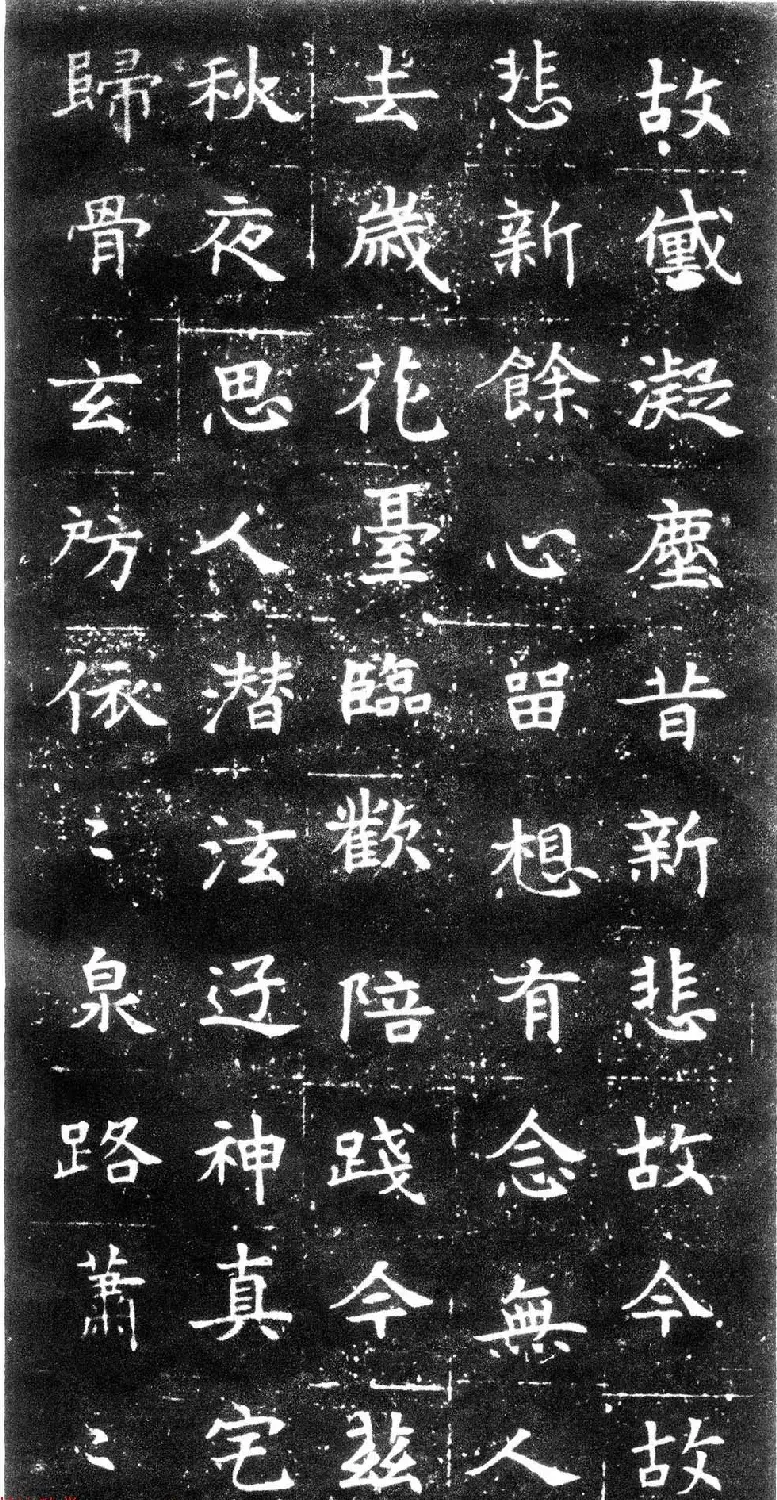 故黛凝塵昔新悲故今故
悲新餘心留想有念無人
去歲花臺臨歡陪踐今茲
秋夜思人潛泫迃神真宅
歸骨玄房依〻泉路蕭〻